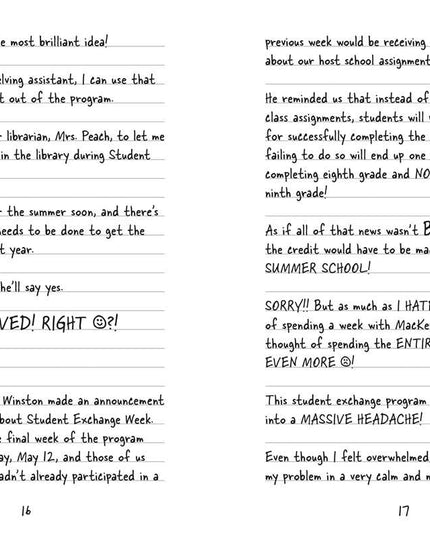 e most brilliant idea!
lving assistant, I can use that
t out of the program.
r librarian, Mrs. Peach, to let me
in the library during Student
r the summer soon, and there's
needs to be done to get the
t year.
he'll say yes.
VED! RIGHT ☺?!
Winston made an announcement
bout Student Exchange Week.
e final week of the program
ay, May 12, and those of us
adn't already participated in a
16
previous week would be receiving
about our host school assignment
He reminded us that instead of
class assignments, students will
for successfully completing the
failing to do so will end up one
completing eighth grade and NO
ninth grade!
As if all of that news wasn't B
the credit would have to be mad
SUMMER SCHOOL!
SORRY!! But as much as I HATE
of spending a week with MacKe
thought of spending the ENTIR
EVEN MORE ☹!
This student exchange program
into a MASSIVE HEADACHE!
Even though I felt overwhelmed
my problem in a very calm and m
17